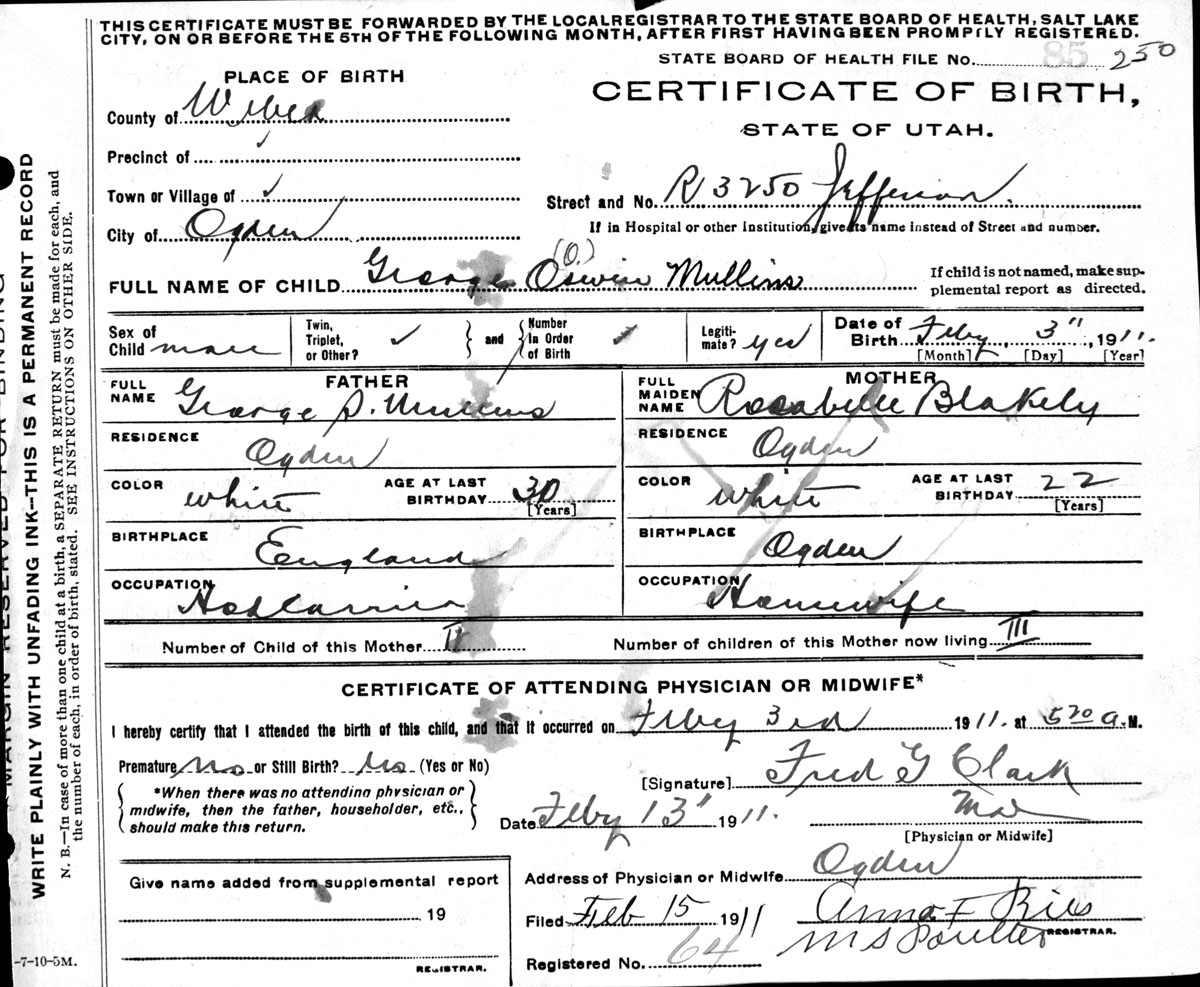 THIS CERTIFICATE MUST BE FORWARDED BY THE LOCALREGISTRAR TO THE STATE BOARD OF HEALTH, SALT LAKE
CITY, ON OR BEFORE THE 5TH OF THE FOLLOWING MONTH, AFTER FIRST HAVING BEEN PROMPTLY REGISTERED.
STATE BOARD OF HEALTH FILE No. 85 250
PLACE OF BIRTH
CERTIFICATE OF BIRTH,
STATE OF UTAH.
County of Weber
Precinct of ✓
Town or Village of ✓
Street and No. R 3250 Jefferson.
City of Ogden
If in Hospital or other Institution, give its name instead of Street and number.
(O.)
FULL NAME OF CHILD George Oswin Mullins
If child is not named, make sup-
plemental report as directed.
Sex of Child male
Twin, Triplet, or Other? ✓
and
Number In Order of Birth ✓
Legiti-mate? yes
Date of Birth Feby 3" 1911.
[Month] [Day] [Year]
FATHER
FULL NAME George S. Mullins
RESIDENCE Ogden
COLOR white
AGE AT LAST BIRTHDAY 30
[Years]
BIRTHPLACE England
OCCUPATION Hod Carrier
MOTHER
FULL MAIDEN NAME Rosabelle Blakely
RESIDENCE Ogden
COLOR white
AGE AT LAST BIRTHDAY 22
[Years]
BIRTHPLACE Ogden
OCCUPATION Housewife
Number of Child of this Mother
Number of children of this Mother now living III
CERTIFICATE OF ATTENDING PHYSICIAN OR MIDWIFE*
I hereby certify that I attended the birth of this child, and that it occurred on Feby 3rd 1911. at 5 20 a.M.
Premature No or Still Birth? No (Yes or No)
[Signature] Fred G Clark
*When there was no attending physician or
midwife, then the father, householder, etc.,
should make this return.
Date Feby 13" 1911.
[Physician or Midwife]
Give name added from supplemental report
19
REGISTRAR.
Address of Physician or Midwife Ogden
Filed Feb 15 1911
Anna F Ries
M S Poulter
REGISTRAR.
Registered No. 64
MARGIN RESERVED FOR BINDING
WRITE PLAINLY WITH UNFADING INK—THIS IS A PERMANENT RECORD
N. B.—In case of more than one child at a birth, a SEPARATE RETURN must be made for each, and
the number of each, in order of birth, stated. SEE INSTRUCTIONS ON OTHER SIDE.
-7-10-5M.